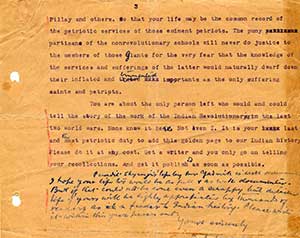 3
Pillay and others. So that your life may be the common record of
the patriotic services of those eminent patriots. The puny
partisans of the nonrevolutionary schools will never do justice to
the members of those Giants for the very fear that the knowledge of
the services and sufferings of the latter would naturally dwarf down
their inflated and importance as the only suffering
saints and patriots.
You are about the only person left who would and could
tell the story of the work of the Indian Revolutionary in the last
two world wars. None know it Not even I. It is your last
and most patriotic duty to add this golden page to our Indian history
Please do it at any cost. Get a writer and you only go on telling
your recollections. And get it published as soon as possible.
life by
I hope your life
But if that could not be even a scrappy but
life of yours will be highly appreciated by thousands of
readers as a
within this year
Yours sincerely